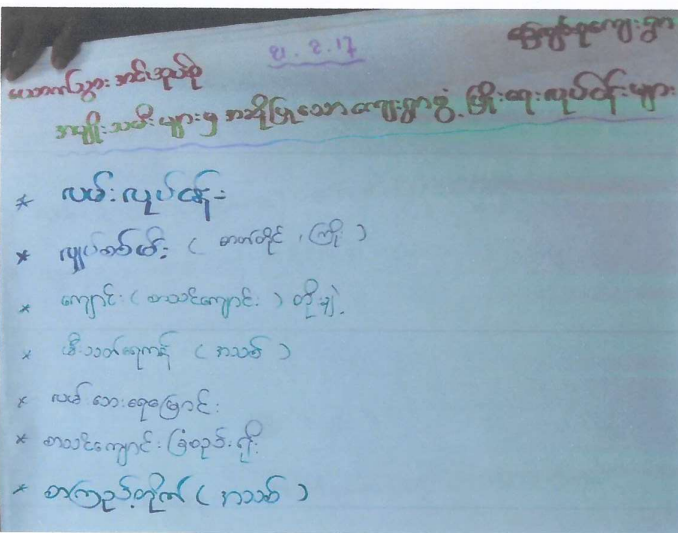 ယောက်သွား အင်းအုပ်စု
၃.၃.၁၇
မြေကျင်းစုကျေးရွာ
အမျိုးသမီးများမှ အဆိုပြုသောကျေးရွာဖွံ့ဖြိုးရေးလုပ်ငန်းများ
* လမ်းလုပ်ငန်း
* လျှပ်စစ်မီး (ဓာတ်တိုင်၊ ကြိုး)
* ကျောင်း (စာသင်ကျောင်း) တိုးချဲ့
* မီးသတ်ရေကန် (အသစ်)
* လမ်းဘေးရေမြောင်း
* စာသင်ကျောင်းခြံစည်းရိုး
* စာကြည့်တိုက် (အသစ်)